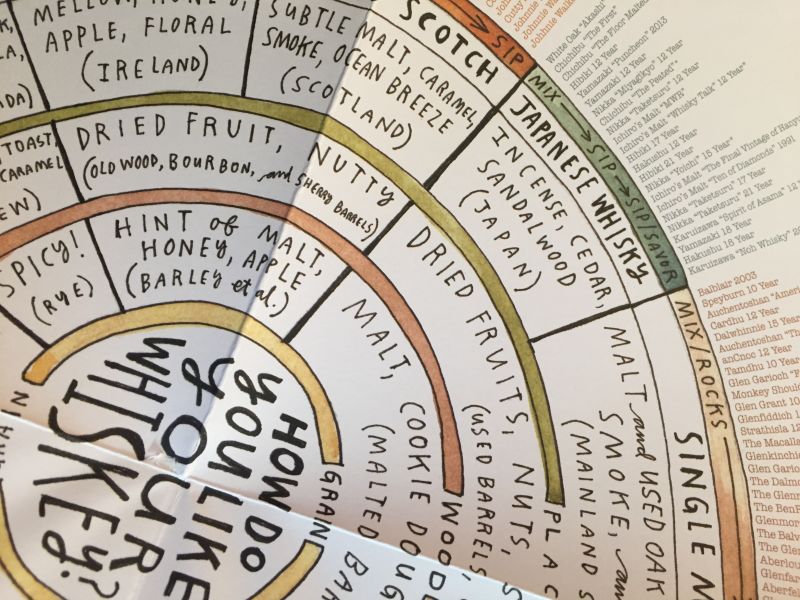 APPLE, FLORAL
(IRELAND)
SUBTLE
SMOKE, OCEAN BREEZE
MALT, CARAMEL,
(SCOTLAND)
SCOTCH
SIP
TOAST,
CARAMEL
DRIED FRUIT,
(OLD WOOD, BOURBON, and SHERRY BARRELS)
NUTTY
SPICY!
(RYE)
HINT of MALT,
HONEY, APPLE
(BARLEY et al.)
HOW DO
YOU LIKE
YOUR
WHISKEY?
GRAIN
MALT, COOKIE DOUG
(MALTED BAR
WOOD
DRIED FRUITS, NUTS,
(USED BARRELS,
PLAC
INCENSE, CEDAR,
SANDALWOOD
(JAPAN)
JAPANESE WHISKY
MIX → SIP → SIP/SAVOR
MALT and USED OAK
SMOKE, and
(MAINLAND S
SINGLE M
MIX/ROCKS
White Oak "Akashi"
Chichibu "The First"
Chichibu "The Floor Malted
Hibiki 12 Year
Yamazaki "Puncheon" 2013
Yamazaki 12 Year
Nikka "Miyagikyo" 12 Year
Nikka "Taketsuru" 12 Year
Chichibu "The Peated"
Ichiro's Malt "MWR"
Ichiro's Malt "Whisky Talk" 12 Year"
Hibiki 17 Year
Hakushu 12 Year
Hibiki 21 Year
Nikka "Yoichi" 15 Year"
Ichiro's Malt "The Final Vintage of Hanyu
Ichiro's Malt "Ten of Diamonds" 1991
Nikka "Taketsuru" 17 Year
Nikka "Taketsuru" 21 Year
Karuizawa "Spirit of Asama" 12
Yamazaki 18 Year
Hakushu 18 Year
Karuizawa "Noh Whisky"
Balblair 2003
Speyburn 10 Year
Auchentoshan "Ameri
Cardhu 12 Year
Dalwhinnie 15 Year
Auchentoshan "Th
anCnoc 12 Year
Tamdhu 10 Year
Glen Garioch
Monkey Should
Glen Grant 10
Glenfiddich
Strathisla 12
The Macalla
Glenkinchie
Glen Garioc
The Dalmo
The Glenr
The BenR
Glenmor
The Balv
The Gle
Aberlou
Glenfi
Aberfel